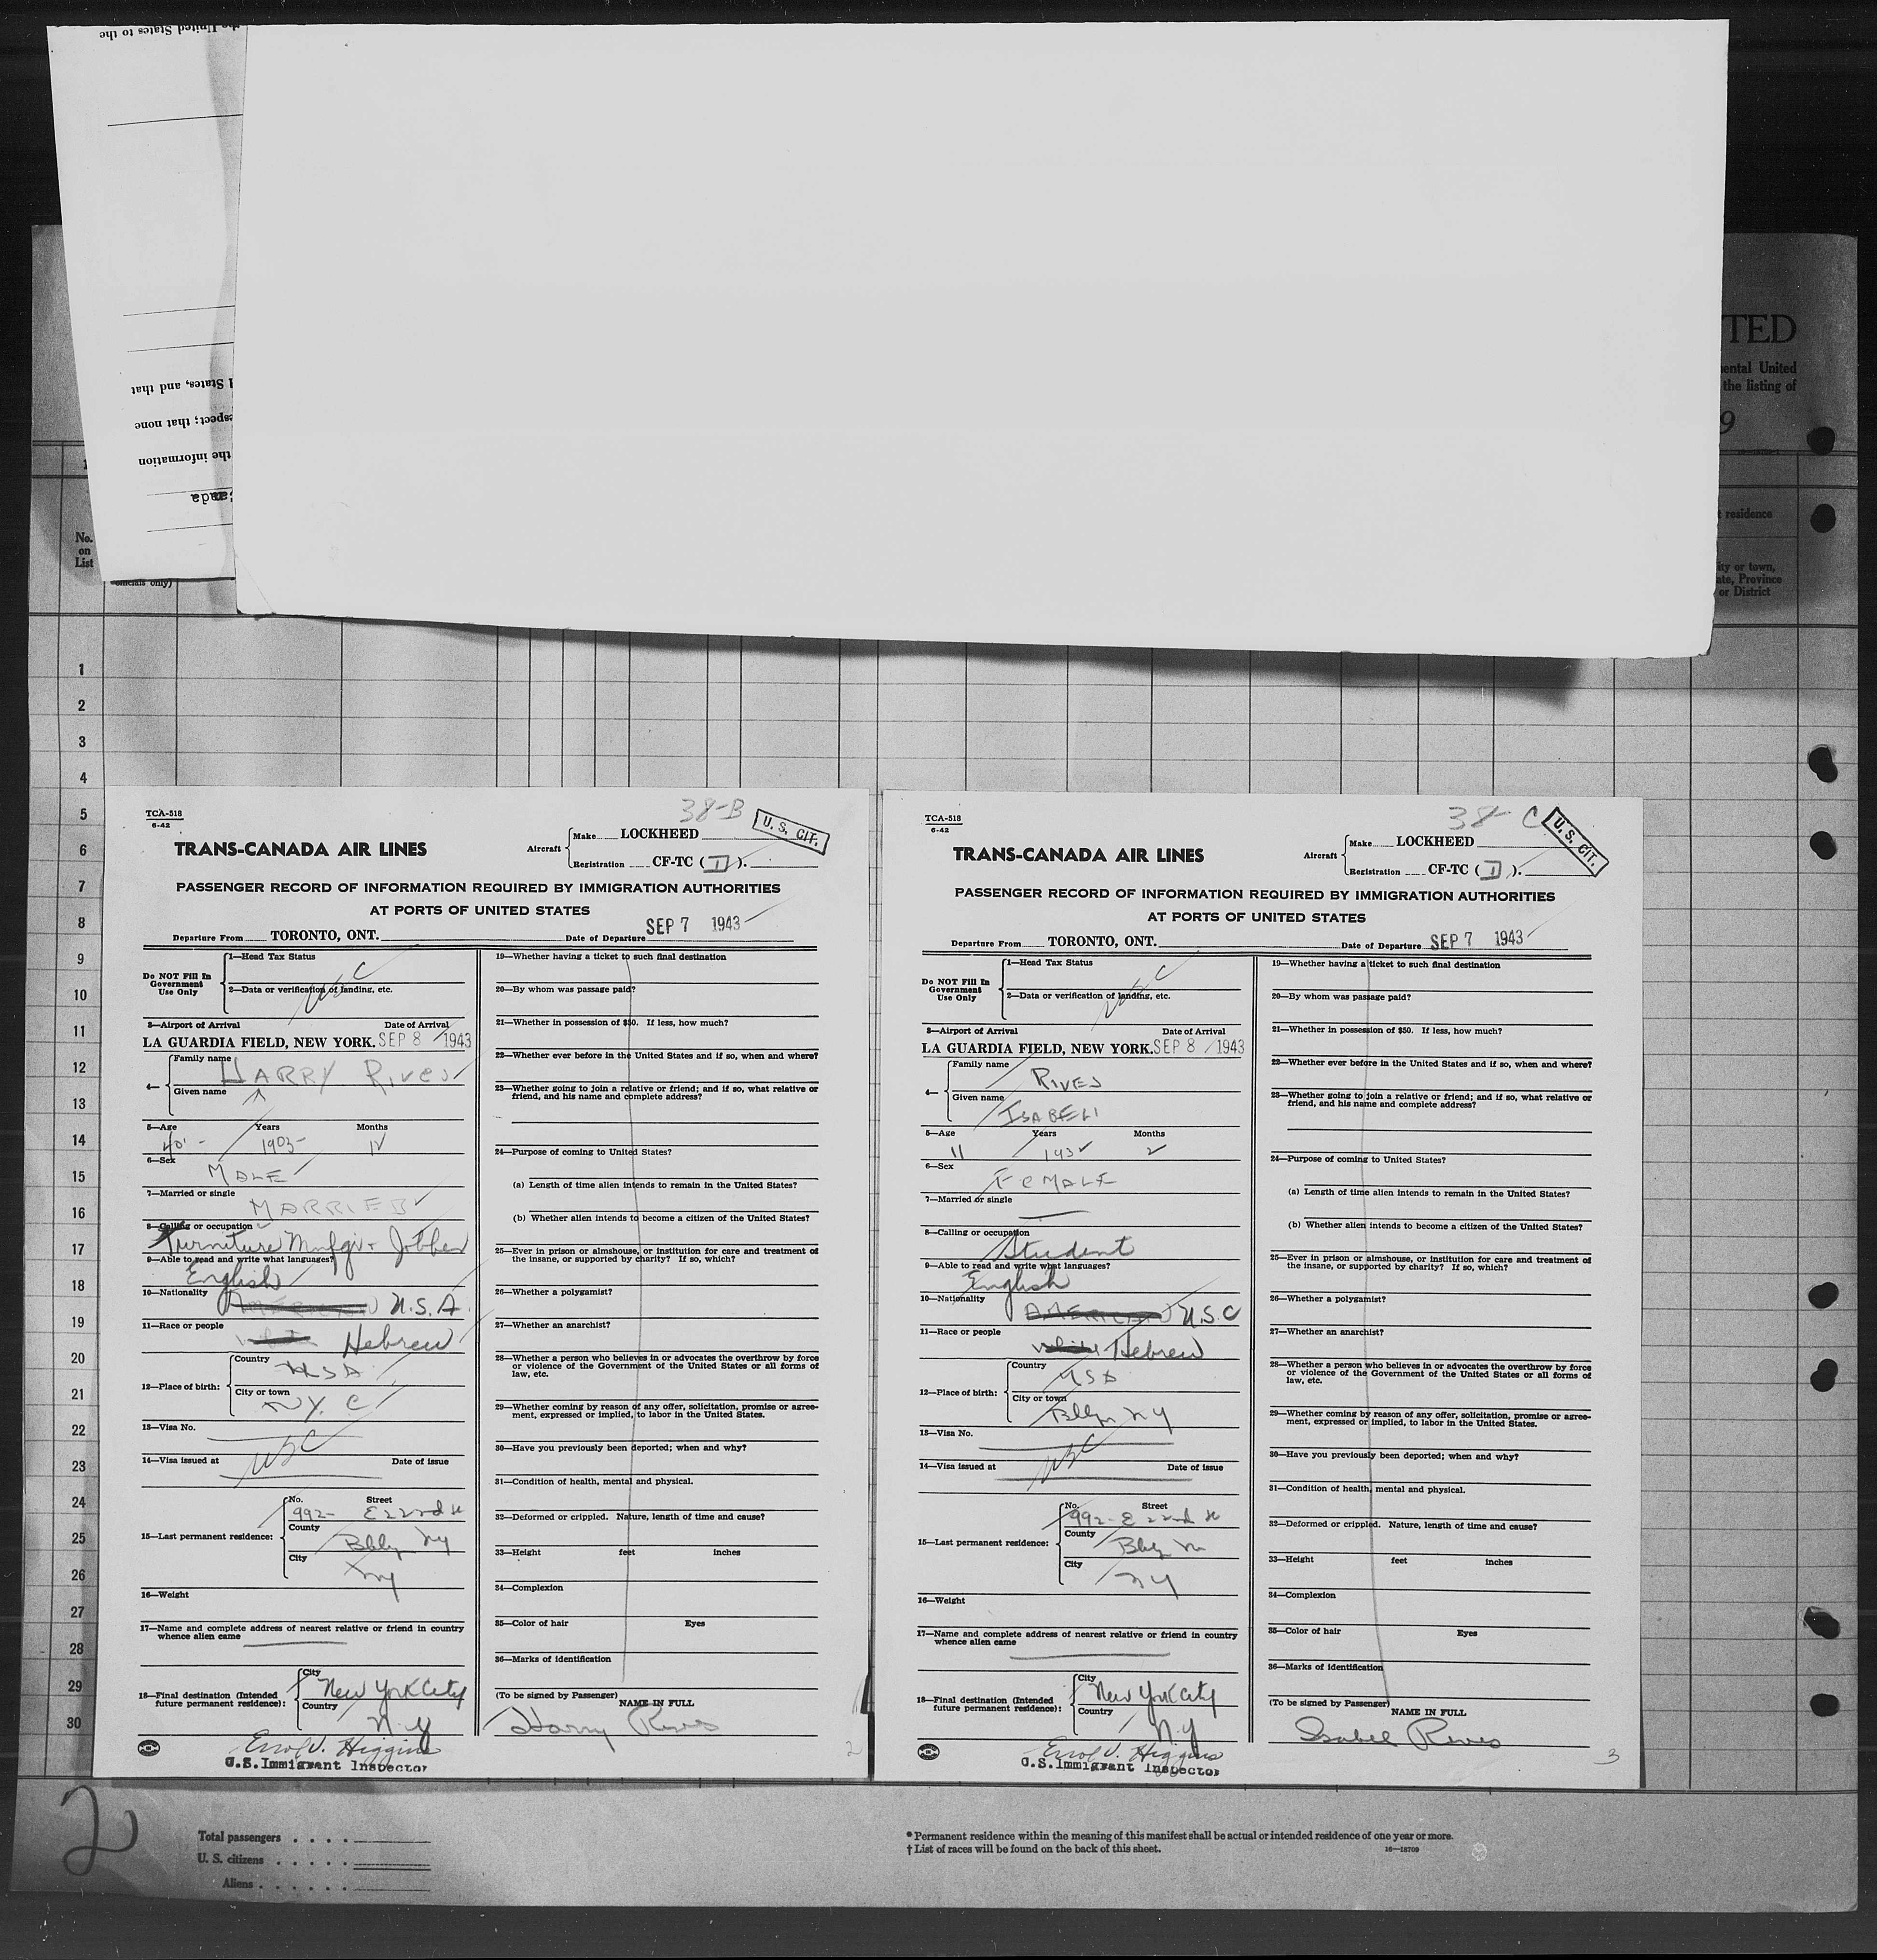 the United States to the
d States, and that
espect; that none
the information
ada
TED
ental United
the listing of
9
residence
ity or town,
ate, Province
or District
No.
on
List
officials only)
1
2
3
4
5
6
7
8
9
10
11
12
13
14
15
16
17
18
19
20
21
22
23
24
25
26
27
28
29
30
38-B
TCA-518
6-42
U. S. CIT.
TRANS-CANADA AIR LINES
Aircraft
Make LOCKHEED
Registration CF-TC (I).
PASSENGER RECORD OF INFORMATION REQUIRED BY IMMIGRATION AUTHORITIES
AT PORTS OF UNITED STATES
Departure From TORONTO, ONT. Date of Departure SEP 7 1943
Do NOT Fill In
Government
Use Only
1—Head Tax Status
2—Data or verification of landing, etc.
USC
3—Airport of Arrival Date of Arrival
LA GUARDIA FIELD, NEW YORK. SEP 8 1943
4— Family name HARRY Rives
Given name
5—Age Years Months
40 - 1903-
6—Sex
MALE
7—Married or single
MARRIED
8—Calling or occupation
Furniture Mnfgr & Jobber
9—Able to read and write what languages?
English
10—Nationality AMERICAN U.S.A.
11—Race or people white Hebrew
12—Place of birth: Country USA
City or town N.Y. C
13—Visa No.
USC
14—Visa issued at Date of issue
15—Last permanent residence: No. Street
992- E 22nd st
County
Bklyn Ny
City
Ny
16—Weight
17—Name and complete address of nearest relative or friend in country
whence alien came
18—Final destination (Intended
future permanent residence):
City New York City
Country N.Y
Errol J. Higgins
U.S. Immigrant Inspector
19—Whether having a ticket to such final destination
20—By whom was passage paid?
21—Whether in possession of $50. If less, how much?
22—Whether ever before in the United States and if so, when and where?
23—Whether going to join a relative or friend; and if so, what relative or
friend, and his name and complete address?
24—Purpose of coming to United States?
(a) Length of time alien intends to remain in the United States?
(b) Whether alien intends to become a citizen of the United States?
25—Ever in prison or almshouse, or institution for care and treatment of
the insane, or supported by charity? If so, which?
26—Whether a polygamist?
27—Whether an anarchist?
28—Whether a person who believes in or advocates the overthrow by force
or violence of the Government of the United States or all forms of
law, etc.
29—Whether coming by reason of any offer, solicitation, promise or agree-
ment, expressed or implied, to labor in the United States.
30—Have you previously been deported; when and why?
31—Condition of health, mental and physical.
32—Deformed or crippled. Nature, length of time and cause?
33—Height feet inches
34—Complexion
35—Color of hair Eyes
36—Marks of identification
(To be signed by Passenger)
NAME IN FULL
Harry Rives
2
38-C
TCA-518
6-42
U. S. CIT.
TRANS-CANADA AIR LINES
Aircraft
Make LOCKHEED
Registration CF-TC (I).
PASSENGER RECORD OF INFORMATION REQUIRED BY IMMIGRATION AUTHORITIES
AT PORTS OF UNITED STATES
Departure From TORONTO, ONT. Date of Departure SEP 7 1943
Do NOT Fill In
Government
Use Only
1—Head Tax Status
2—Data or verification of landing, etc.
USC
3—Airport of Arrival Date of Arrival
LA GUARDIA FIELD, NEW YORK. SEP 8 1943
4— Family name
RIVES
Given name
ISABELL
5—Age Years Months
11 1932 2
6—Sex
FEMALE
7—Married or single
8—Calling or occupation
Student
9—Able to read and write what languages?
English
10—Nationality AMERICAN U.S.C
11—Race or people white Hebrew
12—Place of birth: Country USA
City or town Bklyn NY
13—Visa No.
USC
14—Visa issued at Date of issue
15—Last permanent residence: No. Street
992- E 22nd st
County
Bklyn
City
NY
16—Weight
17—Name and complete address of nearest relative or friend in country
whence alien came
18—Final destination (Intended
future permanent residence):
City New York City
Country N.Y
Errol J. Higgins
U.S. Immigrant Inspector
19—Whether having a ticket to such final destination
20—By whom was passage paid?
21—Whether in possession of $50. If less, how much?
22—Whether ever before in the United States and if so, when and where?
23—Whether going to join a relative or friend; and if so, what relative or
friend, and his name and complete address?
24—Purpose of coming to United States?
(a) Length of time alien intends to remain in the United States?
(b) Whether alien intends to become a citizen of the United States?
25—Ever in prison or almshouse, or institution for care and treatment of
the insane, or supported by charity? If so, which?
26—Whether a polygamist?
27—Whether an anarchist?
28—Whether a person who believes in or advocates the overthrow by force
or violence of the Government of the United States or all forms of
law, etc.
29—Whether coming by reason of any offer, solicitation, promise or agree-
ment, expressed or implied, to labor in the United States.
30—Have you previously been deported; when and why?
31—Condition of health, mental and physical.
32—Deformed or crippled. Nature, length of time and cause?
33—Height feet inches
34—Complexion
35—Color of hair Eyes
36—Marks of identification
(To be signed by Passenger)
NAME IN FULL
Isabel Rives
3
2
Total passengers . . . .
U. S. citizens . . . . .
Aliens . . . . . .
* Permanent residence within the meaning of this manifest shall be actual or intended residence of one year or more.
† List of races will be found on the back of this sheet.
16—18709